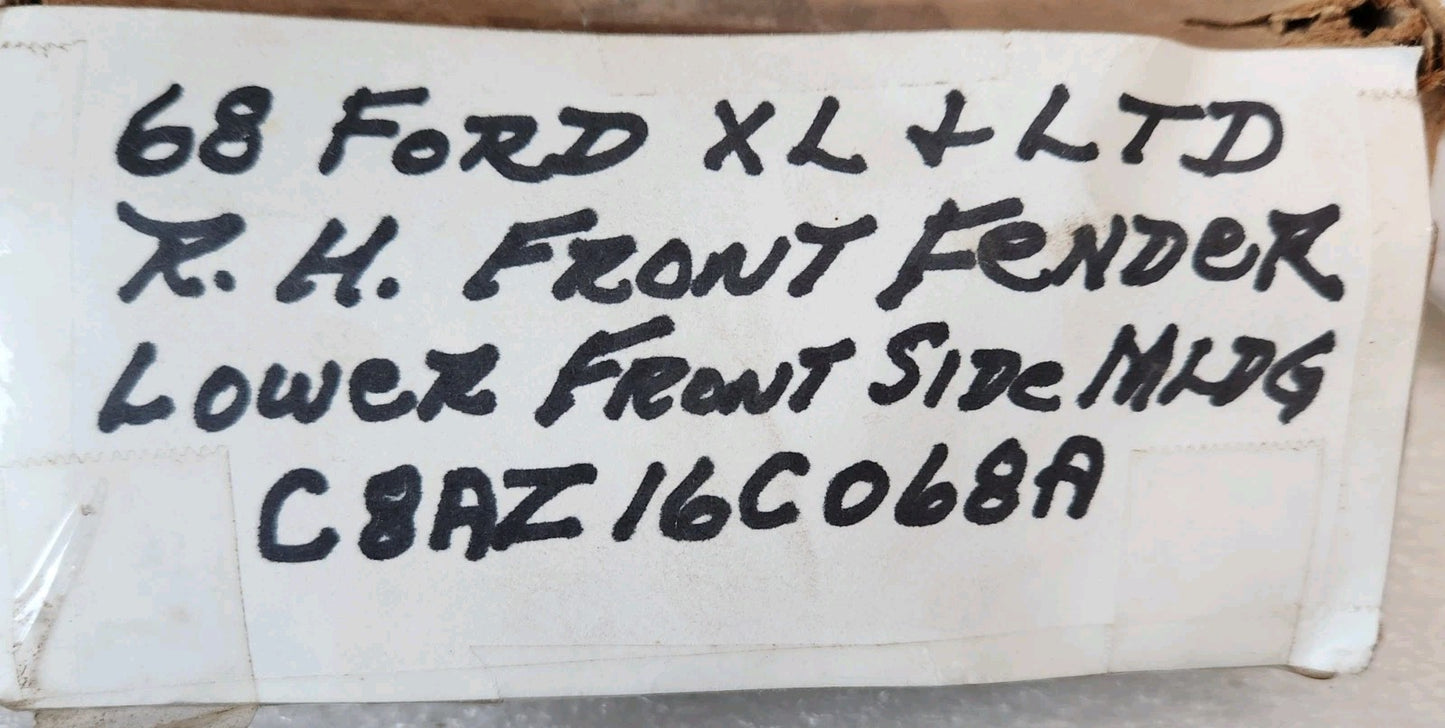 68 FORD XL & LTD
R. H. FRONT FeNDeR
LOWeR FRONT SIDe MLDG
C8AZ 16C068A